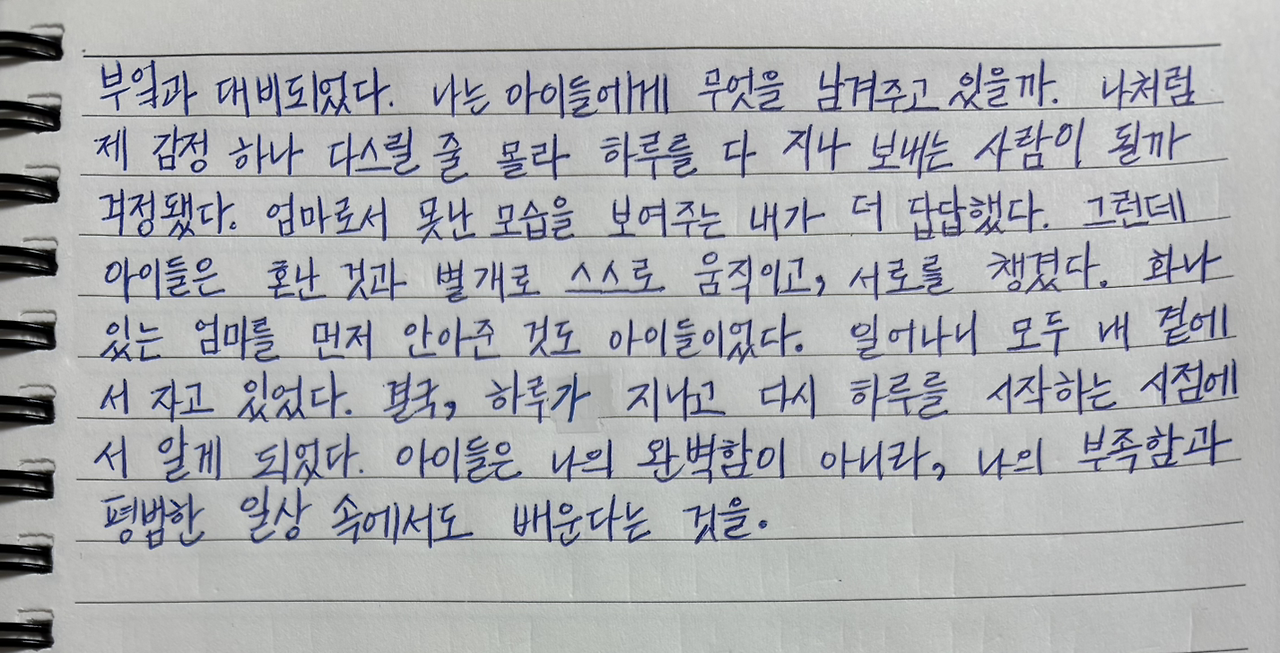 부엌과 대비되었다. 나는 아이들에게 무엇을 남겨주고 있을까. 나처럼
제 감정 하나 다스릴 줄 몰라 하루를 다 지나 보내는 사람이 될까
걱정됐다. 엄마로서 못난 모습을 보여주는 내가 더 답답했다. 그런데
아이들은 혼난 것과 별개로 스스로 움직이고, 서로를 챙겼다. 화나
있는 엄마를 먼저 안아준 것도 아이들이었다. 일어나니 모두 내 곁에
서 자고 있었다. 결국, 하루가 지나고 다시 하루를 시작하는 시점에
서 알게 되었다. 아이들은 나의 완벽함이 아니라, 나의 부족함과
평범한 일상 속에서도 배운다는 것을.